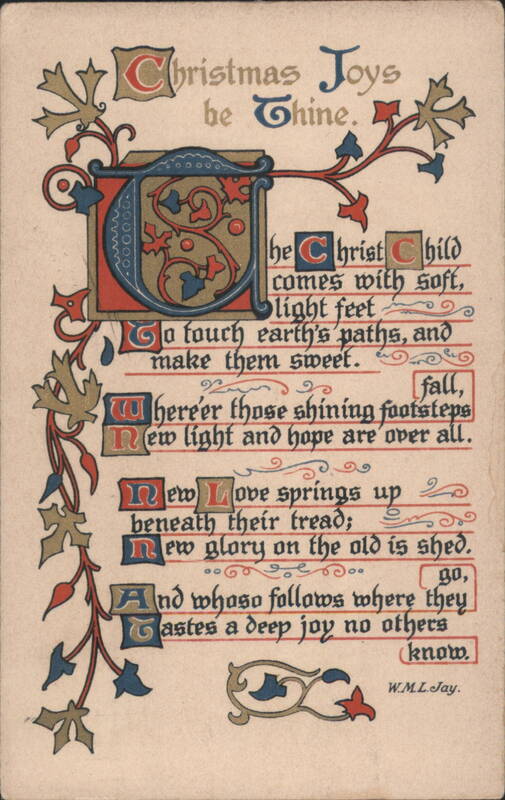 Christmas Joys
be Thine.
The Christ Child
comes with soft,
light feet
To touch earth's paths, and
make them sweet.
Where'er those shining footsteps
fall,
New light and hope are over all.
New Love springs up
beneath their tread;
New glory on the old is shed.
And whoso follows where they
go,
Tastes a deep joy no others
know.
W.M.L.Jay.